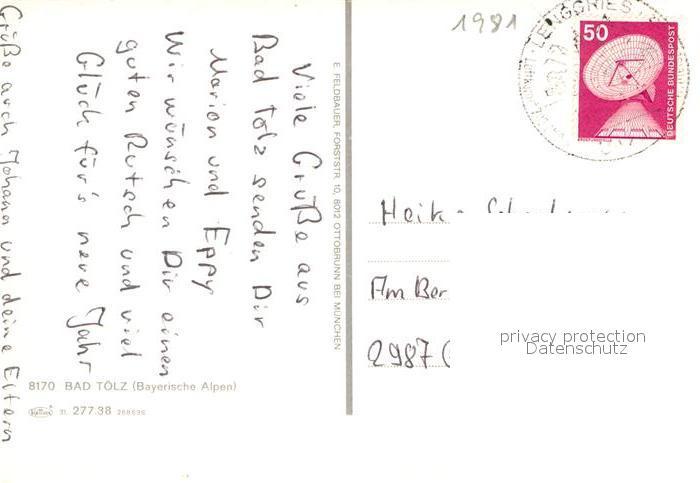 Viele Grüße aus
Bad Tölz senden Dir
Marion und Eppy
Wir wünschen Dir einen
guten Rutsch und viel
Glück für's neue Jahr
Grüße auch Johann und deine Eltern
8170 BAD TÖLZ (Bayerische Alpen)
31. 277.38 268696
E. FELDBAUER, FORSTSTR. 10, 8012 OTTOBRUNN BEI MÜNCHEN
1981
LENGGRIES
50
DEUTSCHE BUNDESPOST
Heik
Am Ber
2987
privacy protection
Datenschutz